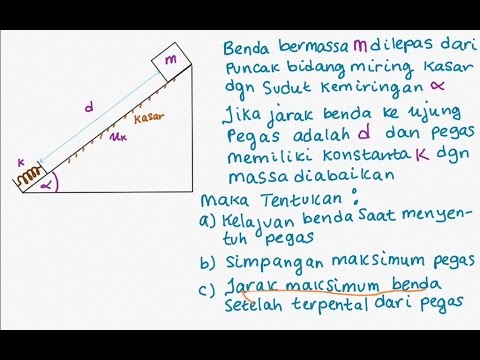 m
d
kasar
μk
k
α
Benda bermassa m dilepas dari
Puncak bidang miring kasar
dgn sudut kemiringan α
Jika jarak benda ke ujung
Pegas adalah d dan pegas
memiliki konstanta k dgn
massa diabaikan
Maka Tentukan :
a) Kelajuan benda saat menyen-
tuh pegas
b) Simpangan maksimum pegas
c) Jarak maksimum benda
setelah terpental dari pegas